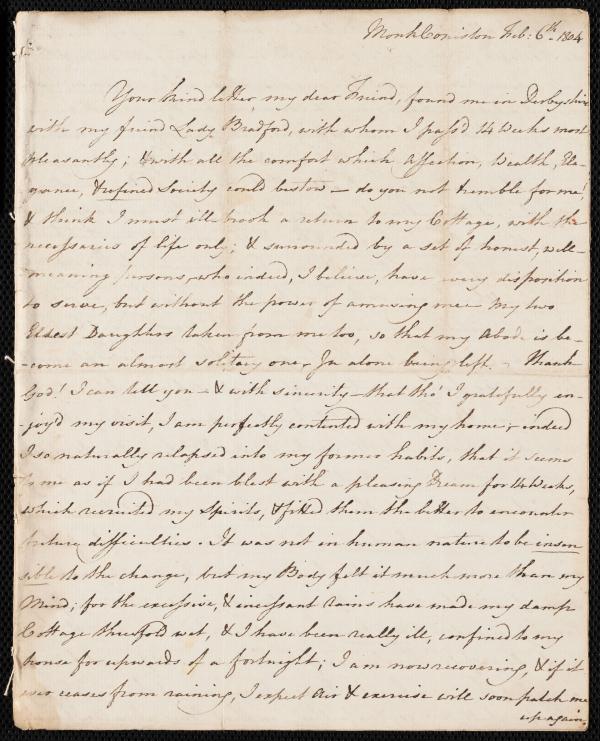 Monk Coniston Feb: 6th. 1804
Your kind letter, my dear Friend, found me in Derbyshire
with my friend Lady Bradford, with whom I pass'd 14 Weeks most
pleasantly; & with all the comfort which Affection, Wealth, Ele-
gance, & refined Society could bestow – do you not tremble for me!
& think I must ill brook a return to my Cottage, with the
necessaries of life only; & surrounded by a set of honest, well-
meaning persons, who indeed, I believe, have every disposition
to serve, but without the power of amusing me – My two
Eldest Daughters taken from me too, so that my Abode is be-
-come an almost solitary one, Ja alone being left. – Thank
God! I can tell you – & with sincerity – that tho' I gratefully en-
-joy'd my visit, I am perfectly contented with my home, & indeed
I so naturally relapsed into my former habits, that it seems
to me as if I had been blest with a pleasing Dream for 14 Weeks,
which recruited my Spirits, & fitted them the better to encounter
future difficulties. It was not in human nature to be insen
sible to the change, but my Body felt it much more than my
Mind; for the excessive, & incessant rains have made my damp
Cottage threefold wet, & I have been really ill, confined to my
house for upwards of a fortnight; I am now recovering, & if it
ever ceases from raining, I expect Air & exercise will soon patch me
up again.